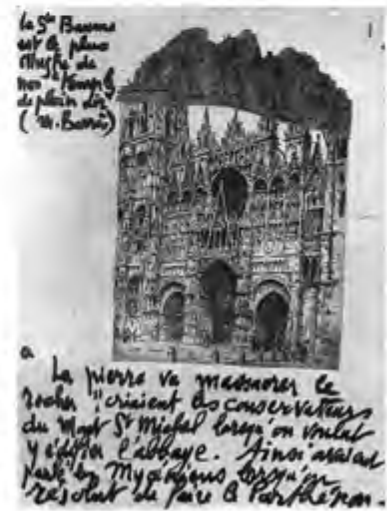 la Ste Baume
est le plus
illustre de
nos temples
de plein air
(M. Barrès)
1
a
"La pierre va massacrer le
rocher" criaient les conservateurs
du Mont St Michel lorsqu'on voulut
y édifier l'abbaye. Ainsi avaient
parlé les Mycéniens lorsqu'on
résolut de faire le Parthénon.